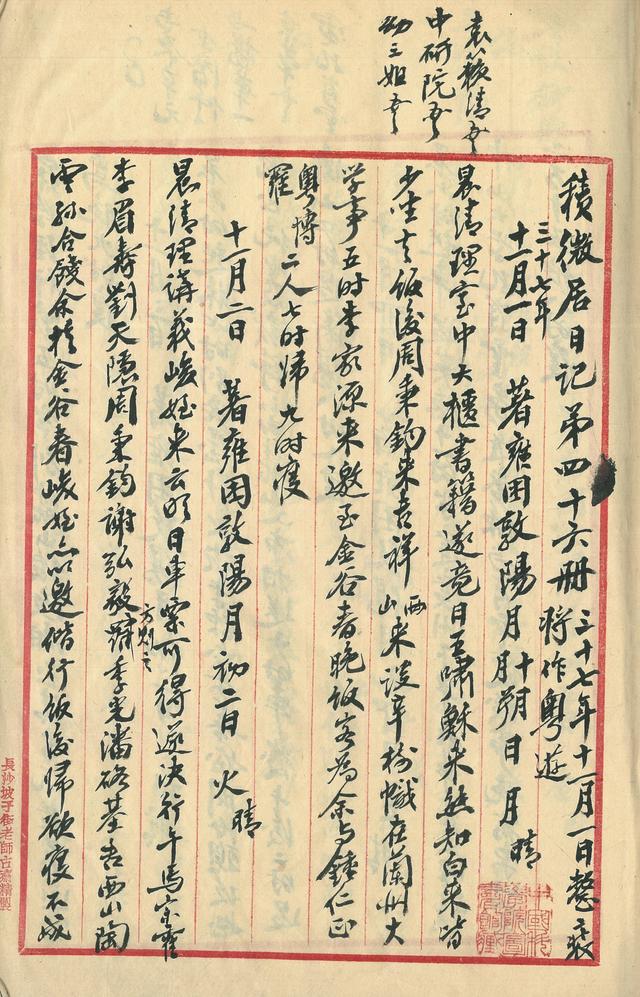 中研院
幼三姐
積微居日記第四十六冊 三十七年十一月一日整裝
將作粵遊
三十七年
十一月一日 著雍困敦陽月十月朔日 月 晴
晨清理室中大櫃書籍遂竟日王嘯穌來熊知白來皆
少坐去飯後周秉鈞來吉祥西山來談辛樹幟在蘭州大
學事五時李家源來邀至金谷春晚飯客為余與鍾仁正
粵博
羅 二人七時歸九時寢
十一月二日 著雍困敦陽月初二日 火 晴
晨清理講義峻姪來云明日車票可得遂決行午馬宗霍
李眉壽劉天隱周秉鈞謝弘毅季光潘碩基吉西山陶
雲孫合餞余於金谷春峻姪亦邀偕行飯後歸欲寢不成
長沙坡子街老師古齋精製